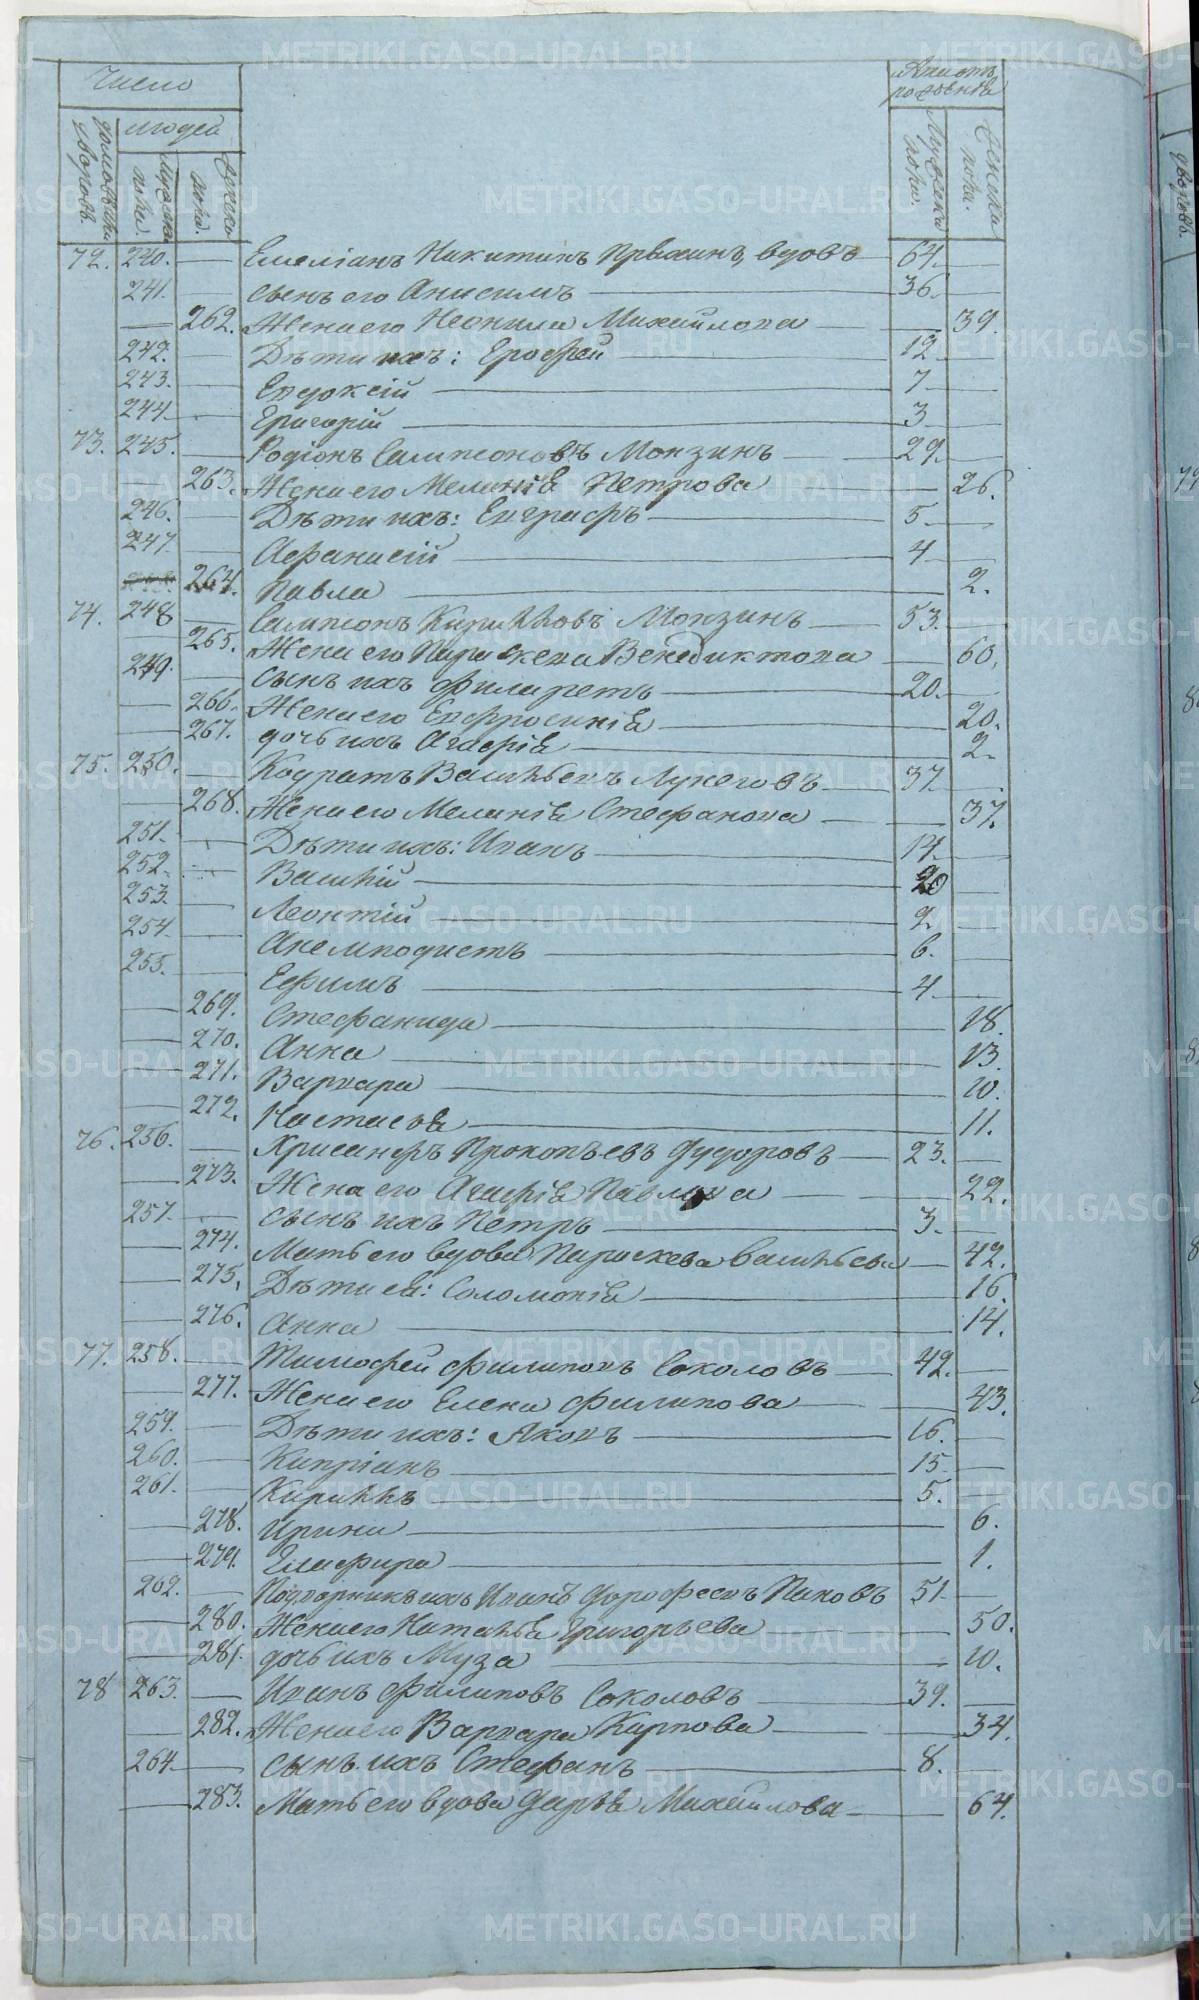 Число
Лѣтъ отъ рожденія
домовъ или дворовъ.
людей
Мужска пола.
Женска пола.
Мужска пола.
Женска пола.
72. 240. Емеліанъ Никитинъ вдовъ 64.
241. сынъ его Анисимъ 36.
262. Жена его Неонила Михайлова 39.
242. Дѣти ихъ: Ерофей 12
243. Евдоксій 7
244. Григорій 3
73. 245. Родіонъ Сампсоновъ Монзинъ 29.
263. Жена его Меланія Петрова 26.
246. Дѣти ихъ: Евграфъ 5
247 Афанасій 4
264. Павла 2.
74. 248 Сампсонъ Кириловъ Монзинъ 53.
265. Жена его Параскева Венедиктова 60.
249. сынъ ихъ Филаретъ 20.
266. Жена его Евфросинія 20.
267. дочь ихъ Агафія 2
75. 250. Кодратъ Васильевъ Лунеговъ 37.
268. Жена его Меланія Стефанова 37.
251. Дѣти ихъ: Иванъ 14.
252. Василій 20
253. Леонтій 2
254. Анемподистъ 6.
255. Ефимъ 4
269. Стефанида 18.
270. Анна 13.
271. Варвара 10.
272. Настасья 11.
76. 256. Хрисанфъ Прокопьевъ Фудоровъ 23.
273. Жена его Агафія Павлова 22.
257. сынъ ихъ Петръ 3.
274. Мать его вдова Параскева Васильева 42.
275. Дѣти ея: Соломонія 16.
276. Анна 14.
77. 258. Тимофей Филиповъ Соколовъ 42.
277. Жена его Елена Филипова 43.
259. Дѣти ихъ: Яковъ 16.
260. Кипріанъ 15
261. Кирилъ 5.
278. Ирина 6.
279. Глафира 1.
262. Подворникъ ихъ Иванъ Дорофеевъ Пановъ 51.
280. Жена его Наталья Григорьева 50.
281. дочь ихъ Муза 10.
78 263. Иванъ Филиповъ Соколовъ 39.
282. Жена его Варвара Карпова 34.
264 сынъ ихъ Стефанъ 8.
283. Мать его вдова Дарья Михайлова 64.